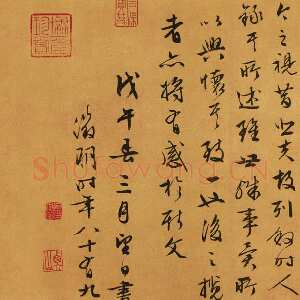 今之視昔悲夫故列叙時人
錄其所述雖世殊事異所
以興懷其致一也後之攬
者亦將有感於斯文
戊午春三月望日書
徵明時年八十有九